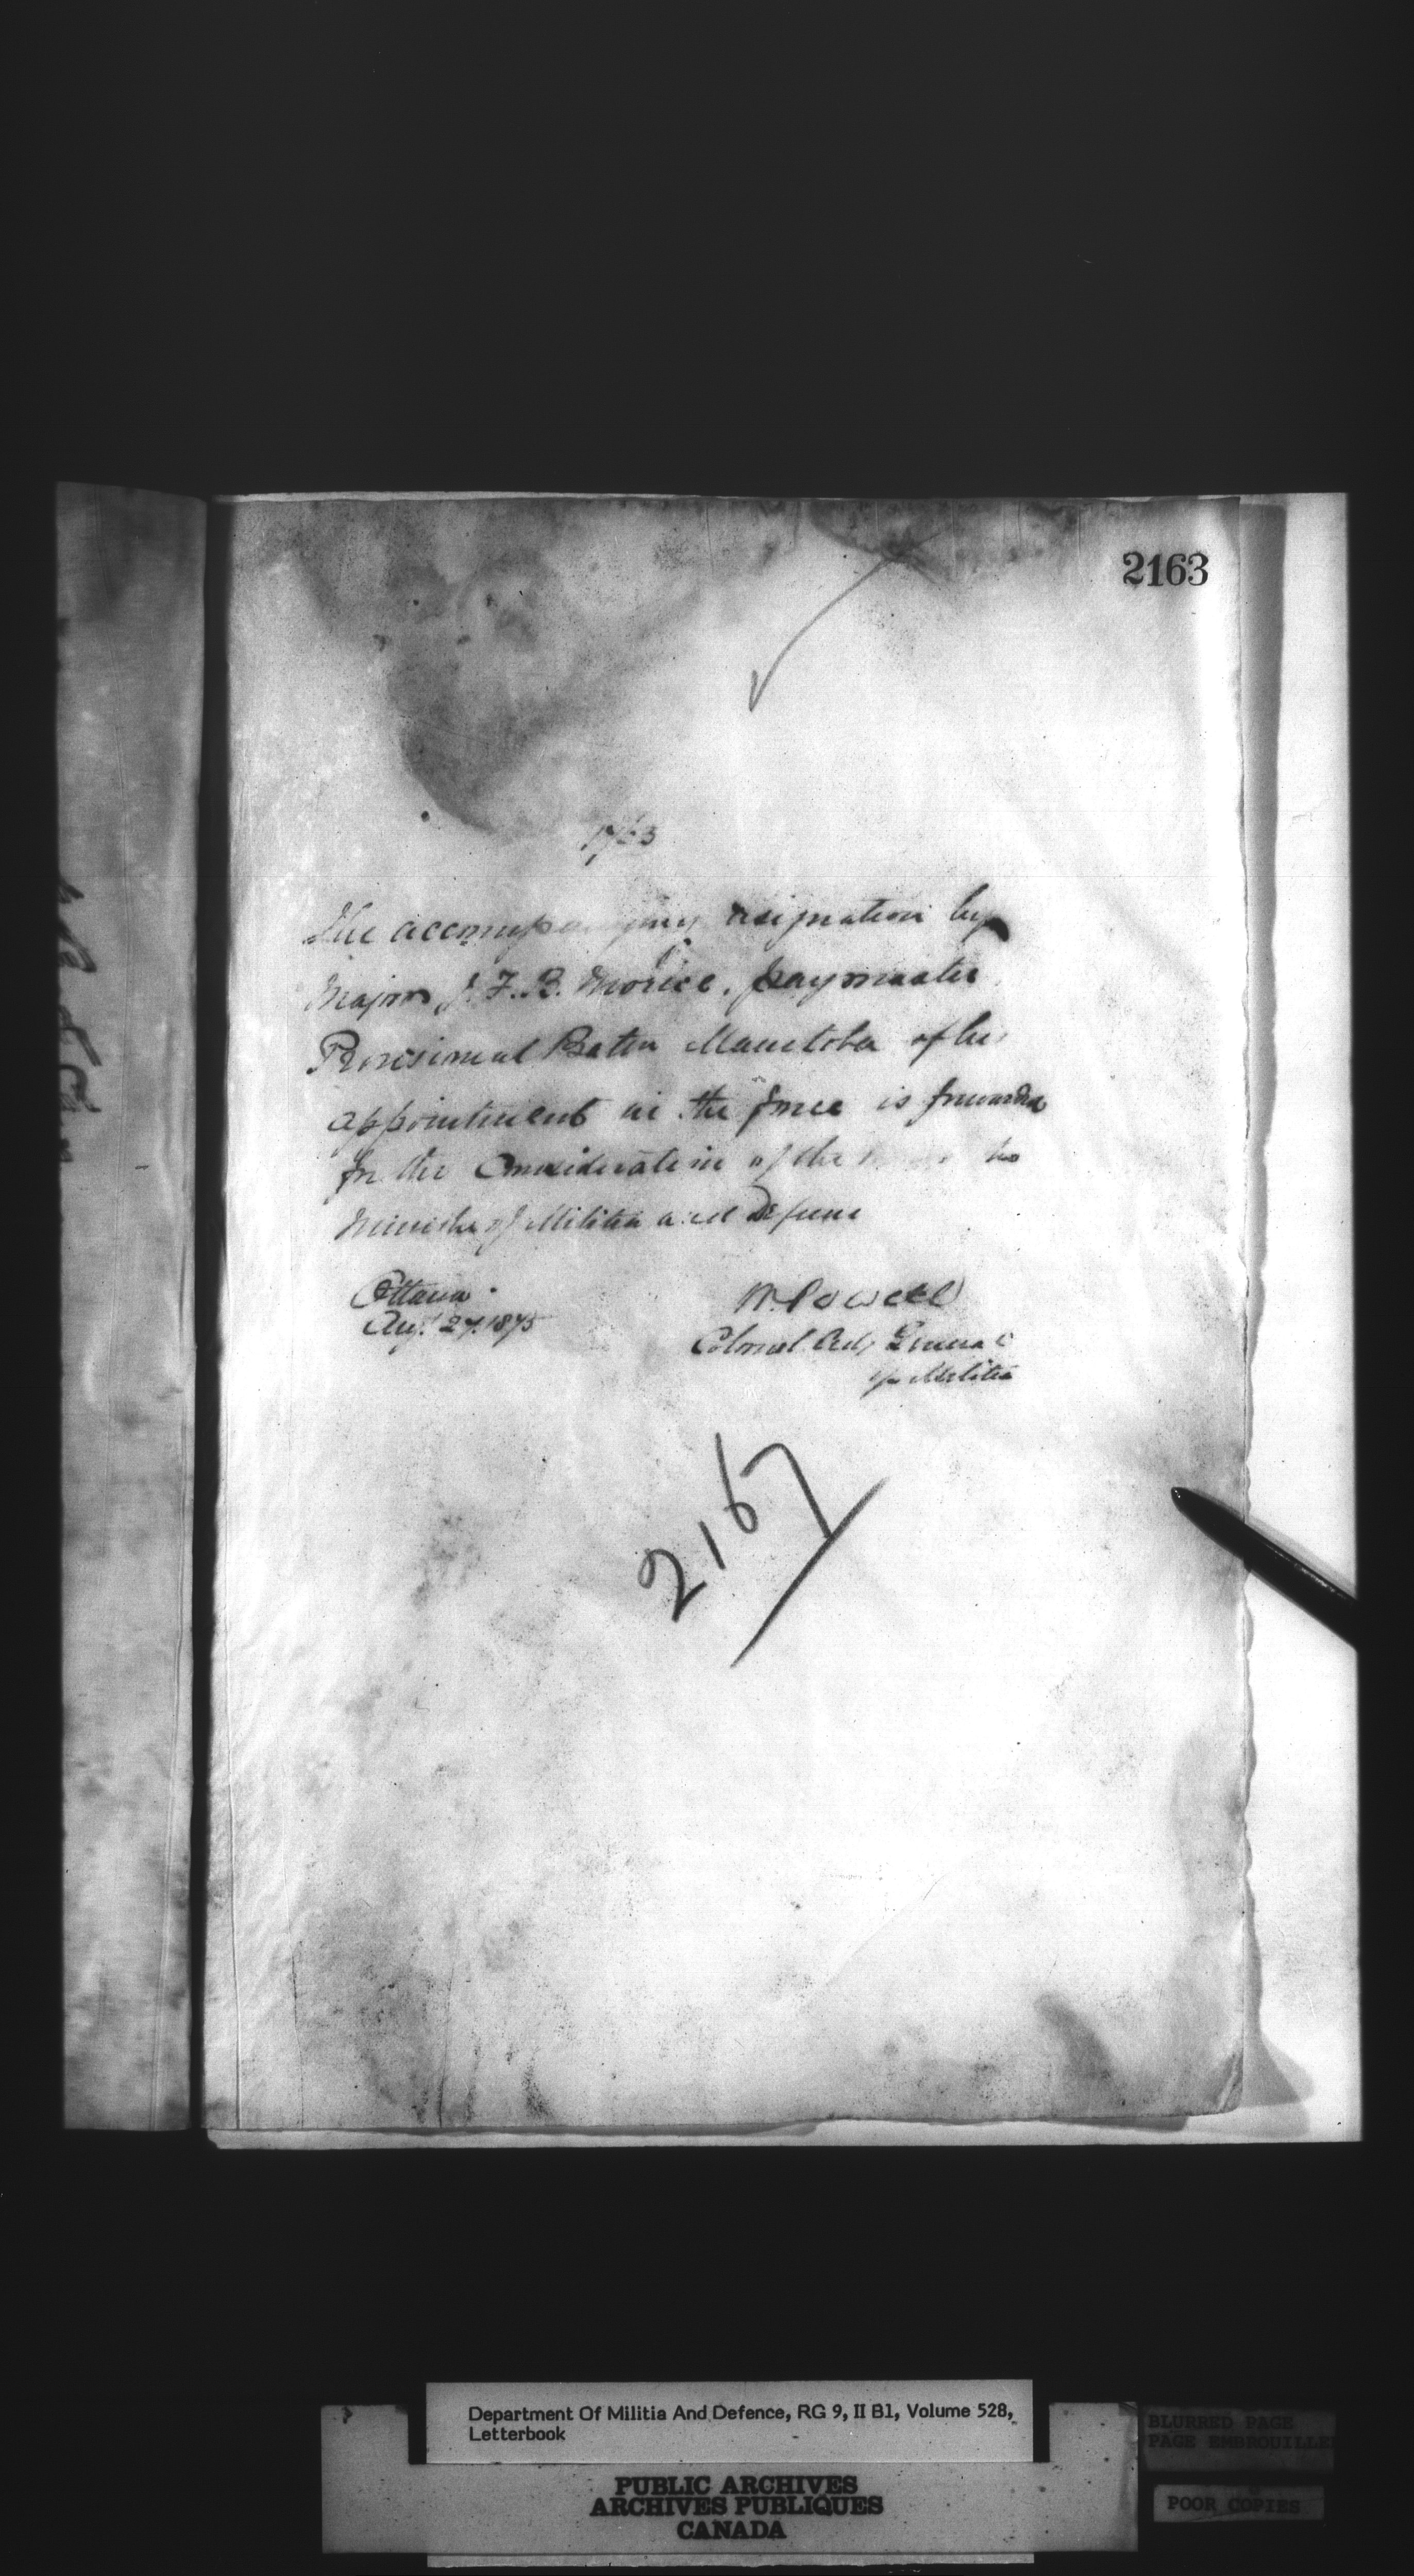 2163
The accompanying resignation by
Major J. F. B. Morice, paymaster
Provisional Battn Manitoba of his
appointment in the force is forwarded
for the Consideration of the
Minister of Militia and Defence
Ottawa
Augt 27. 1875
W. Powell
Colonel Adj General
of Militia
2167
Department Of Militia And Defence, RG 9, II B1, Volume 528,
Letterbook
PUBLIC ARCHIVES
ARCHIVES PUBLIQUES
CANADA
BLURRED PAGE
PAGE EMBROUILLE
POOR COPIES